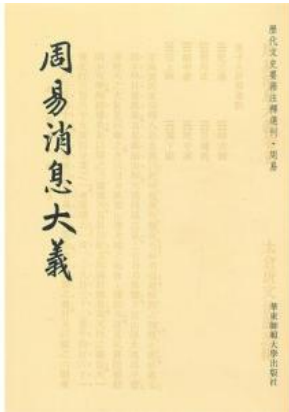 歷代文史要籍注釋選刊·周易
周易消息大義
華東師範大學出版社